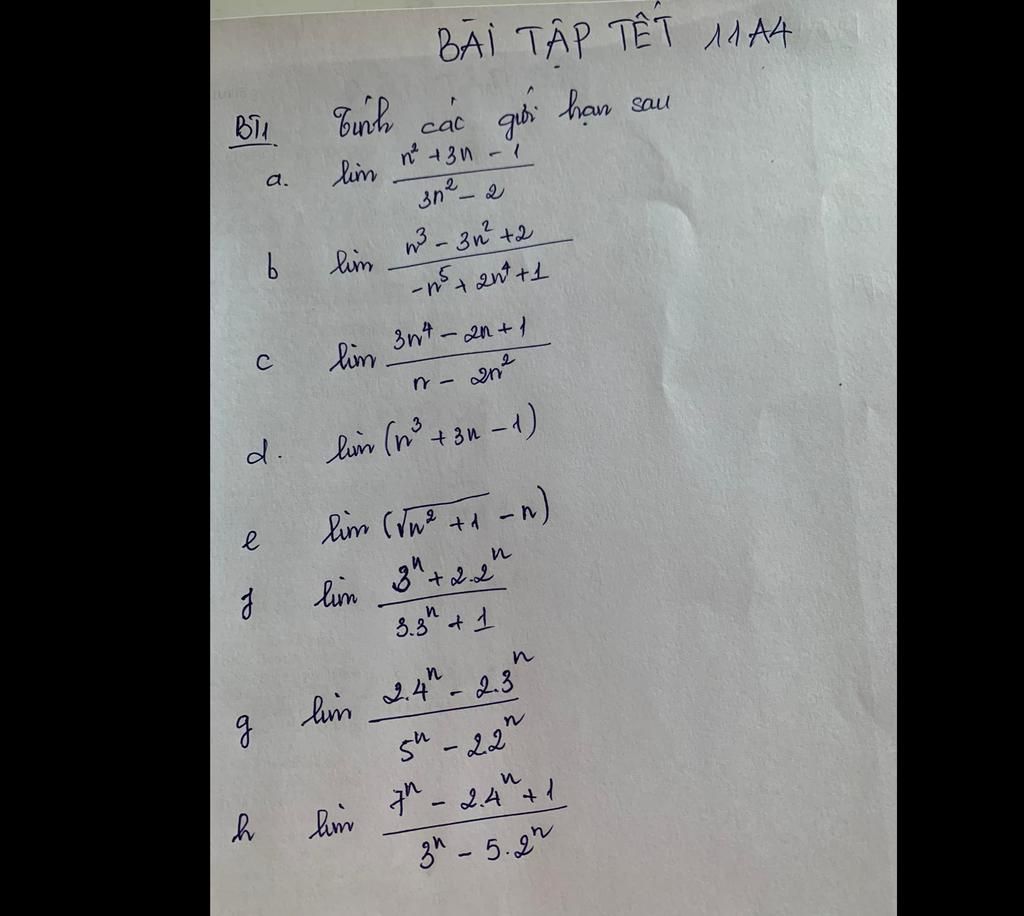 BÀI TẬP TẾT 11A4
BT1. Tính các giới hạn sau
a. lim (n² + 3n - 1)/(3n² - 2)
b lim (n³ - 3n² + 2)/(-n⁵ + 2n⁴ + 1)
c lim (3n⁴ - 2n + 1)/(n - 2n²)
d. lim (n³ + 3n - 1)
e lim (√(n² + 1) - n)
f lim (3ⁿ + 2.2ⁿ)/(3.3ⁿ + 1)
g lim (2.4ⁿ - 2.3ⁿ)/(5ⁿ - 2.2ⁿ)
h lim (7ⁿ - 2.4ⁿ + 1)/(3ⁿ - 5.2ⁿ)